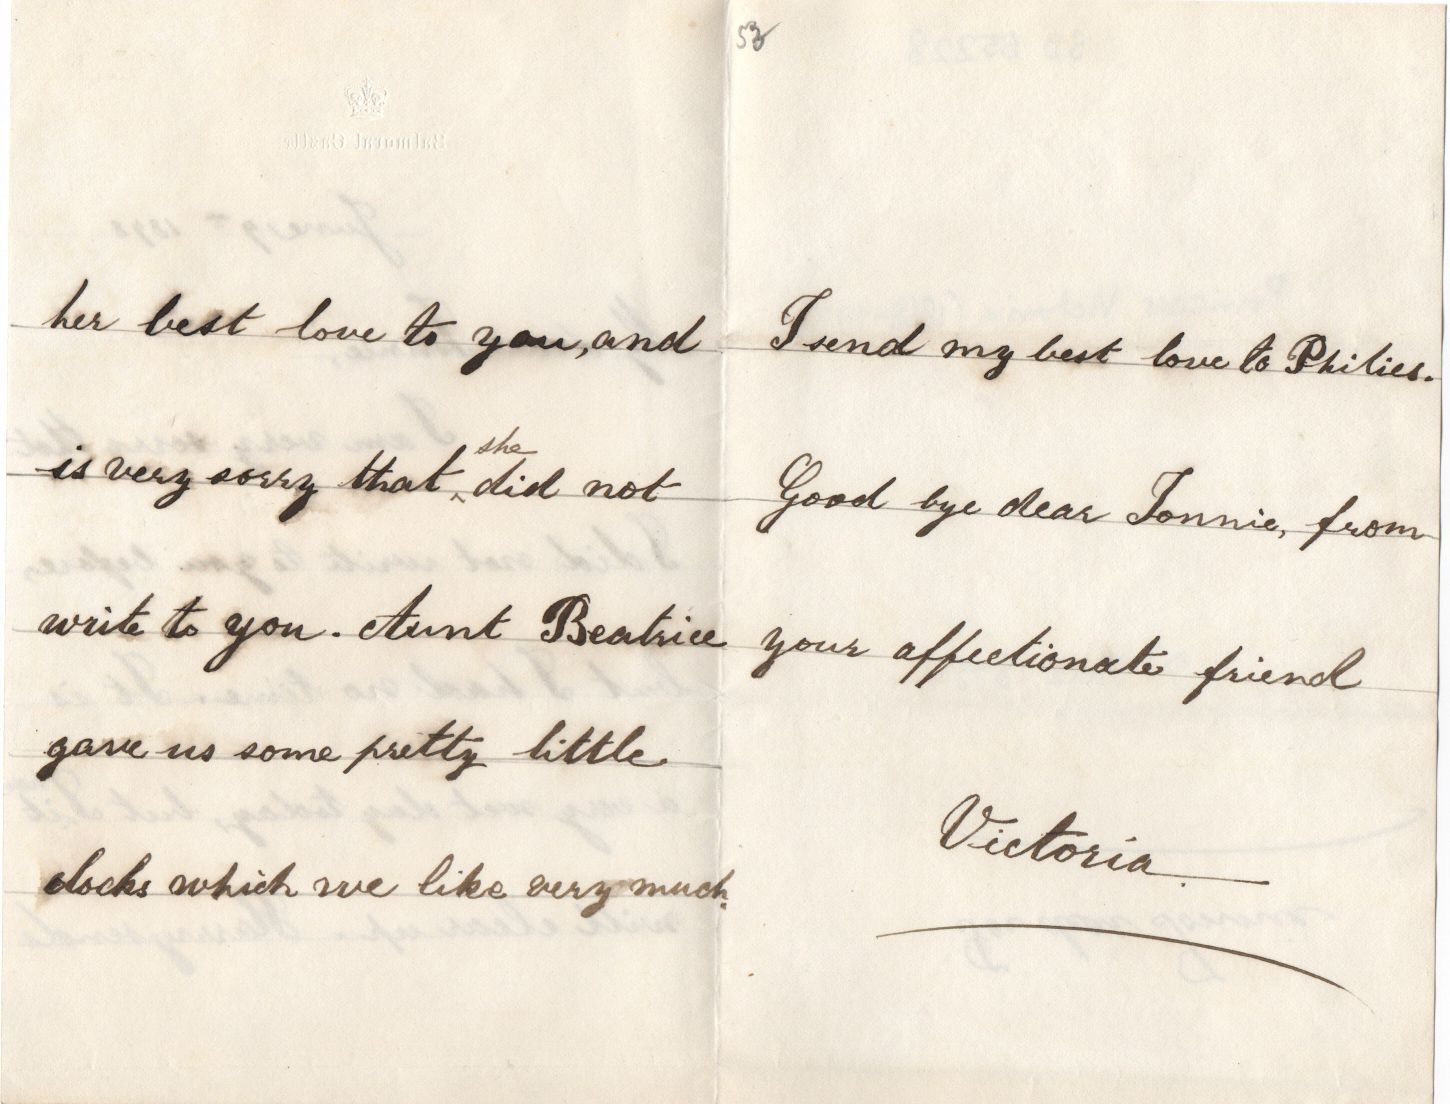 53
Balmoral Castle
her best love to you, and
is very sorry that ^she did not
write to you. Aunt Beatrice
gave us some pretty little
clocks which we like very much.
I send my best love to Philies.
Good bye dear Tonnie, from
your affectionate friend
Victoria